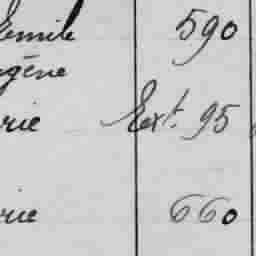 Emile 590
gène
rie Ext. 95
rie 660